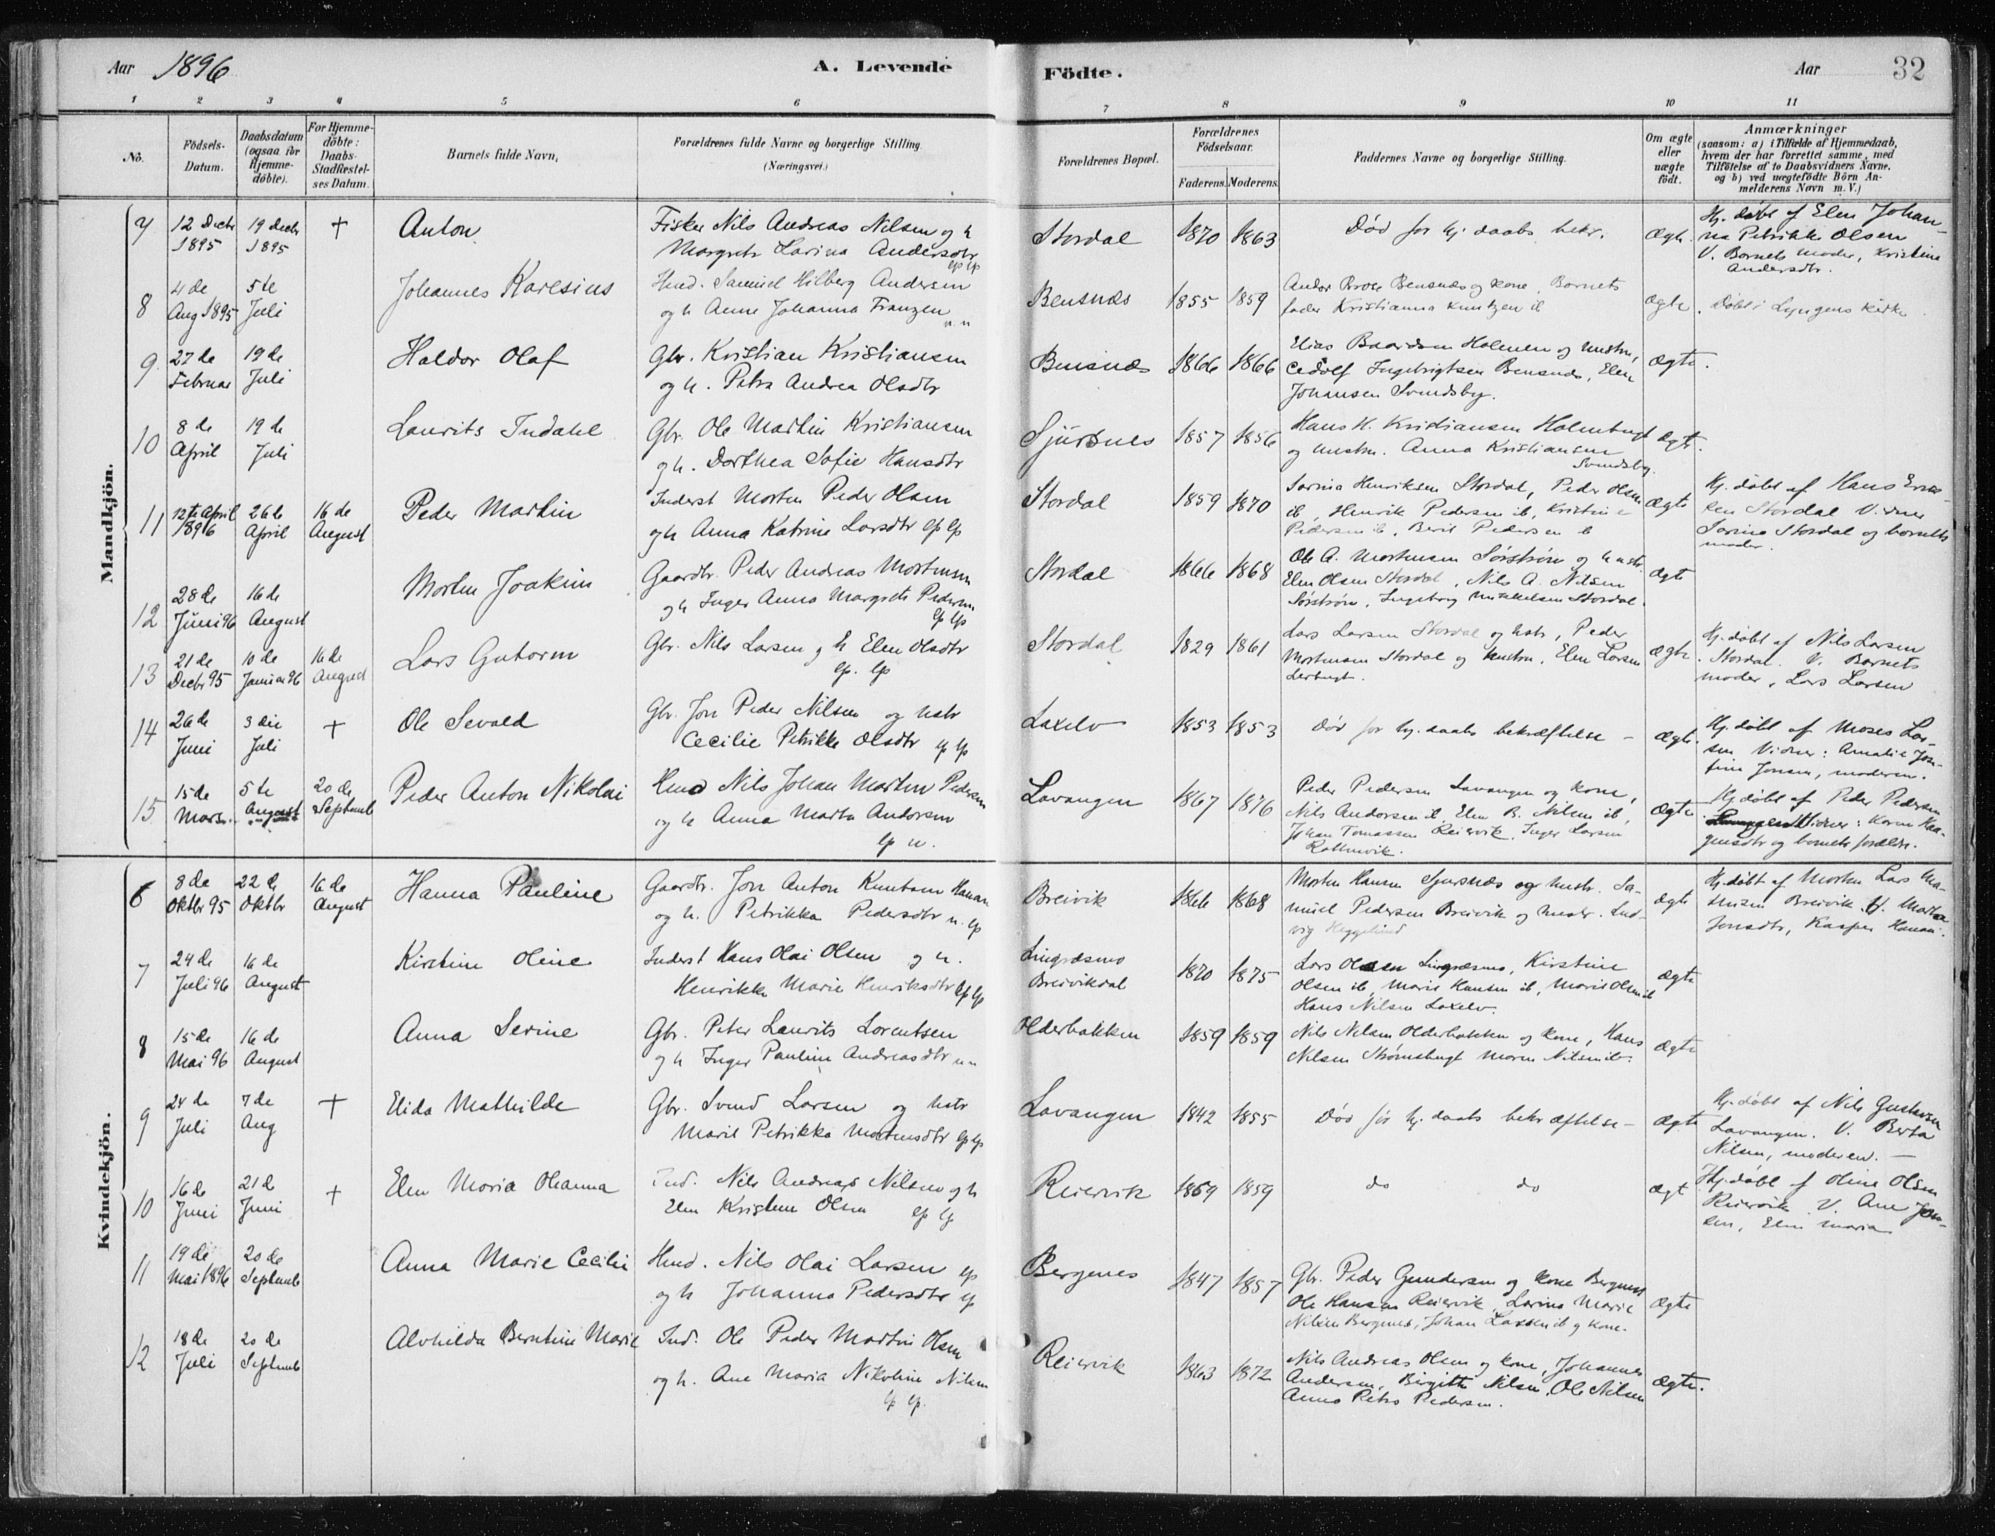 Aar 1896 A. Levende Födte. Aar 32
1 2 3 4 5 6 7 8 9 10 11
No.
Födsels-Datum.
Daabsdatum (ogsaa for Hjemme-döbte).
For Hjemme-döbte: Daabs-Stadfæstel-ses Datum.
Barnets fulde Navn.
Forældrenes fulde Navne og borgerlige Stilling. (Næringsvei.)
Forældrenes Bopæl.
Forældrenes Födselsaar. Faderens. Moderens.
Faddernes Navne og borgerlige Stilling.
Om ægte eller uægte födt.
Anmærkninger
(saasom: a) i Tilfælde af Hjemmedaab,
hvem der har forrettet samme, med
Tilföielse af to Daabsvidners Navne,
og b) ved uægtefödte Börn An-
melderens Navn m. V.)
Mandkjön.
7
12 Decbr 1895
19 Decbr 1895
+
Anton
Fisker Nils Andreas Nilsen og h
Margrete Larina Andersdtr
lp lp
Stordal
1870 1863
Død før hj. daabs bekr.
Ægte
Hj. døbt af Elen Johan-
na Petrikke Olsen
V. Barnets moder, Kristine
Andersdtr.
8
4 de Aug 1895
5te Juli
Johannes Karesius
Hmd. Samuel Hilberg Andersen
og h Anne Johanna Franzen
n n
Bensnæs
1855 1859
Andor Prose Bensnæs og kone, Barnets
fader Kristianna Knutzen ib
ægte.
Døbt i Lyngens kirke
9
27 de Februar
19 de Juli
Haldor Olaf
Gbr. Kristian Kristiansen
og h. Petra Andrea Olsdtr
Bensnæs
1866 1866
Elias Baardsen Holmen og hustru,
Cedolf Ingebrigtsen Bensnæs, Elen
Johansen Svendsby.
ægte.
10
8 de April
19 de Juli
Laurits Indahl
Gbr. Ole Martin Kristiansen
og h. Dorthea Sofie Hansdtr
Sjursnes
1857 1856
Hans H. Kristiansen Holmbugt
og hustru. Anna Kristiansen
Svendsby.
ægt.
11
12te April 1896
26 de April
16 de August
Peder Martin
Inderst Morten Peder Olsen
og h Anna Katrine Larsdtr lp lp
Stordal
1859 1870
Sarina Henriksen Stordal, Peder Olsen
ib, Henrik Pedersen ib, Kristine
Pedersen ib, Berit Pedersen ib
ægte
Hj. døbt af Hans
Stordal Vidner
Sarina Stordal og barnets
moder.
12
28 de Juni 96
16 de August
Morten Joakim
Gaardbr. Peder Andreas Mortensen
og h Inger Anna Margrete Pedersen
lp lp
Stordal
1866 1868
Ole A. Mortensen Sørstrøm og hustr.
Elen Olsen Stordal, Nils A. Nilsen
Sørstrøm, Ingeborg Mikkelsen Stordal.
ægte
13
21 de Decbr 95
10 de Januar 96
16 de August
Lars Gutorm
Gbr. Nils Larsen og h Elen Olsdtr
lp. lp
Stordal
1829 1861
Lars Larsen Stordal og hstr, Peder
Mortensen Stordal og hustru. Elen Larsen
ægte
Hj. døbt af Nils Larsen
Stordal. V. Barnets
moder, Lars Larsen
14
26 de Juni
3 die Juli
+
Ole Sevald
Gbr. Jon Peder Nilsen og hstr
Cecilie Petrikke Olsdtr lp lp
Laxelv
1853 1853
Død før hj. daabs bekræftelse –
ægte.
Hj. døbt af Moses Lar-
sen Vidner: Amalie Jose-
fine Jonsen, moderen.
15
15 de Mars.
5 te August
20 de Septemb
Peder Anton Nikolai
Hmd Nils Johan Martin Pedersen
og h Anna Marta Andorsen
lp n.
Lavangen
1867 1876
Peder Pedersen Lavangen og kone,
Nils Andorsen ib, Elen B. Nilsen ib,
Johan Tomassen Reiervik, Inger Larsen
ægte
Hj. døbt af Peder Pedersen
Vidner: Karen
og barnets forældre.
Kvindekjön.
6
8 de Oktbr 95
22 de Oktbr
16 de August
Hanna Pauline
Gaardbr. Jon Anton Knutsen Hansen
og h. Petrikka Pedersdtr n. lp
Breivik
1866 1868
Morten Hansen Sjursnæs og hustr. Sa-
muel Pedersen Breivik og hustr. Lud-
vig Heggelund
ægte
Hj. døbt af Morten Lars Ma-
thisen Breivik. V. Marta
Jonsdtr, Kasper Hansen.
7
24 de Juli 96
16 de August
Kirstine Oline
Inderst Hans Olai Olsen og h.
Henrikke Marie Henriksdtr lp lp
Lingræsmo
Breivikdal
1870 1875
Lars Olsen Lingræsmo, Kirstine
Olsen ib, Marie Hansen ib, Marie Olsen ib
Hans Nilsen Laxelv.
ægte
8
15 de Mai 96
16 de August
Anna Serine
Gbr. Peter Laurits Lorentsen
og h Inger Pauline Andreasdtr n n
Olderbakken
1859 1859
Nils Nilsen Olderbakken og kone, Hans
Nilsen Strømsbugt Maren Nilsen ib.
ægte
9
24 de Juli
7 de Aug
+
Elida Mathilde
Gbr. Svend Larsen og hstr
Marit Petrikka Mortensdtr lp lp
Lavangen
1842 1855
Død før hj. daabs bekræftelse –
ægte
Hj. døbt af Nils Gustavsen
Lavangen. V. Berta
Nilsen, moderen. –
10
16 de Juni
21 de Juni
+
Elen Maria Olianna
Ind. Nils Andreas Nilsen og h
Elen Kristine Olsen lp lp
Reiervik
1869 1859
do do
ægt
Hj. døbt af Oline Olsen
Reiervik V. Ane Jon-
sen, Elen Maria
11
19 de Mai 1896
20 de Septemb
Anna Marie Cecilie
Hmd. Nils Olai Larsen lp
og h Johanna Pedersdtr lp
Bergenes
1847 1857
Gbr. Peder Gundersen og kone Bergenes
Ole Hansen Reiervik, Larina Marie
Nilsen Bergenes, Johan Larsen ib og kone.
ægte
12
18 de Juli
20 de Septemb
Alvhilda Berntine Marie
Ind. Ole Peder Martin Olsen
og h. Ane Maria Nikoline Nilsen
lp lp.
Reiervik
1863 1872
Nils Andreas Olsen og kone, Johannes
Andersen, Birgitte Nilsen, Ole Nilsen
Anna Petra Pedersen.
ægte.